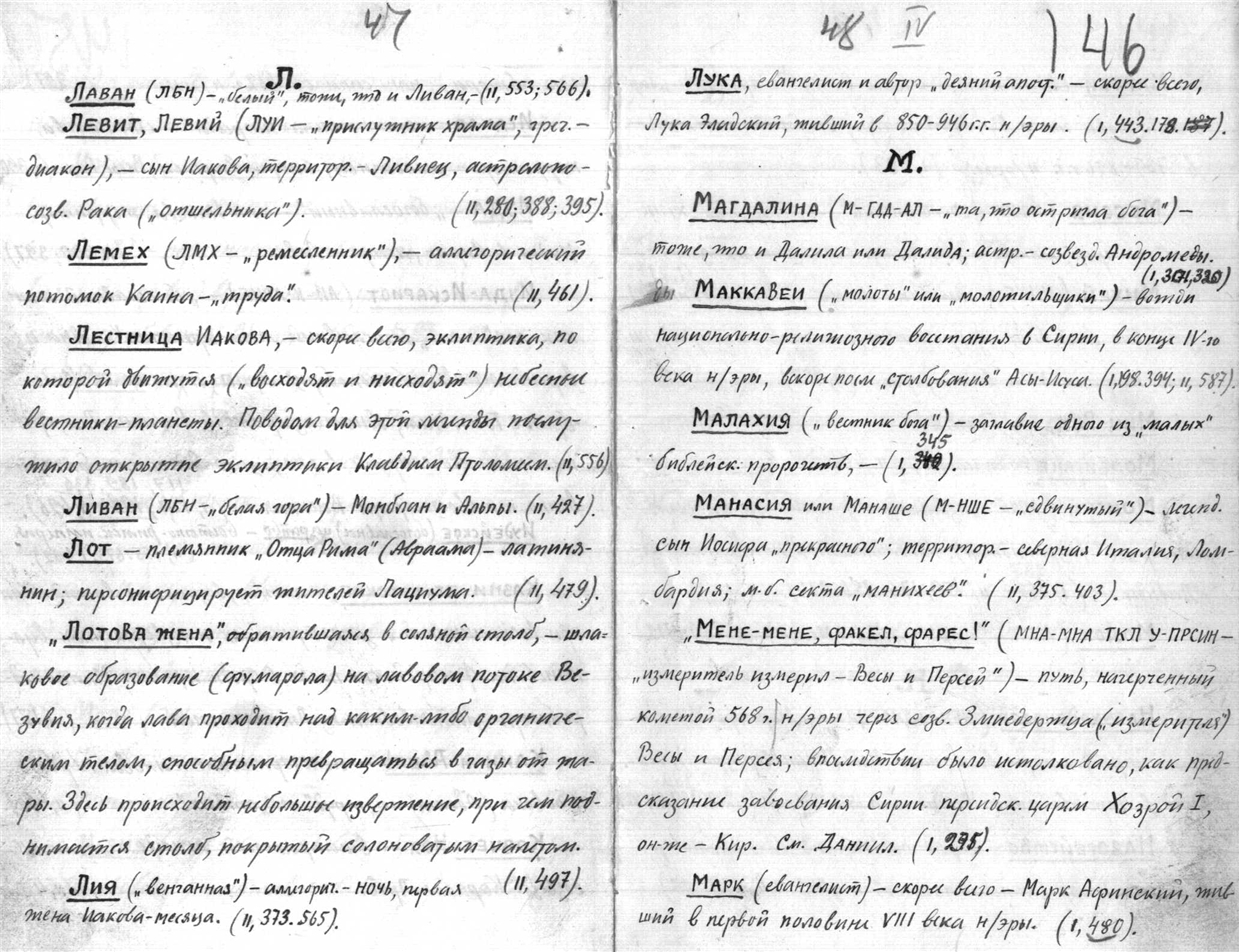 47
Л.
ЛАВАН (ЛБН) – „белый", тоже, что и Ливан, – (II, 553; 566).
ЛЕВИТ, ЛЕВИЙ (ЛУИ – „прислужник храма", греч. –
диакон), – сын Иакова, территор. – Ливиец, астрально –
созв. Рака („отшельника"). (II, 280; 388; 395).
ЛЕМЕХ (ЛМХ – „ремесленник"), – аллегорический
потомок Каина – „труда". (II, 461).
ЛЕСТНИЦА ИАКОВА, – скорее всего, эклиптика, по
которой движутся („восходят и нисходят") небесные
вестники-планеты. Поводом для этой легенды послу-
жило открытие эклиптики Клавдием Птоломеем. (II, 556)
ЛИВАН (ЛБН – „белая гора") – Монблан и Альпы. (II, 427).
ЛОТ – племянник „Отца Рима" (Авраама) – латиня-
нин; персонифицирует жителей Лациума. (II, 479).
„ЛОТОВА ЖЕНА", обратившаяся в соляной столб, – шла-
ковое образование (фумарола) на лавовом потоке Ве-
зувия, когда лава проходит над каким-либо органиче-
ским телом, способным превращаться в газы от жа-
ры. Здесь происходит небольшое извержение, при чем под-
нимается столб, покрытый солоноватым налетом.
ЛИЯ („венчанная") – алигорич. – ночь, первая (II, 497).
жена Иакова-месяца. (II, 373. 565).
48 IV 146
ЛУКА, евангелист и автор „деяний апост." – скорее всего,
Лука Эладский, живший в 850-946 г.г. н/эры. (I, 443. 178. 187).
М.
МАГДАЛИНА (М-ГДД-АЛ – „та, что остригла бога") –
тоже, что и Далила или Далида; астр. – созвезд. Андромеды.
(I, 301, 320)
МАККАВЕИ („молоты" или „молотильщики") – вожди
национально-религиозного восстания в Сирии, в конце IV-го
века н/эры, вскоре после „столбования" Асы-Исуса. (I, 198. 394; II, 587).
МАЛАХИЯ („вестник бога") – заглавие одного из „малых"
библейск. пророчеств, – (I, 345).
МАНАСИЯ или МАНАШЕ (М-НШЕ – „сдвинутый") – легенд.
сын Иосифа „прекрасного"; территор. – северная Италия, Лом-
бардия; м.б. секта „манихеев". (II, 375. 403).
„МЕНЕ-МЕНЕ, ФАКЕЛ, ФАРЕС!" (МНА-МНА ТКЛ У-ПРСИН –
„измеритель измерил – Весы и Персей") – путь, начерченный
кометой 568 г. н/эры через созв. Змиедержца („измерителя")
Весы и Персея; впоследствии было истолковано, как пред-
сказание завоевания Сирии персидск. царем Хозрой I,
он-же – Кир. См. Даниил. (I, 295).
МАРК (евангелист) – скорее всего – Марк Афинский, жив-
ший в первой половине VIII века н/эры. (I, 480).